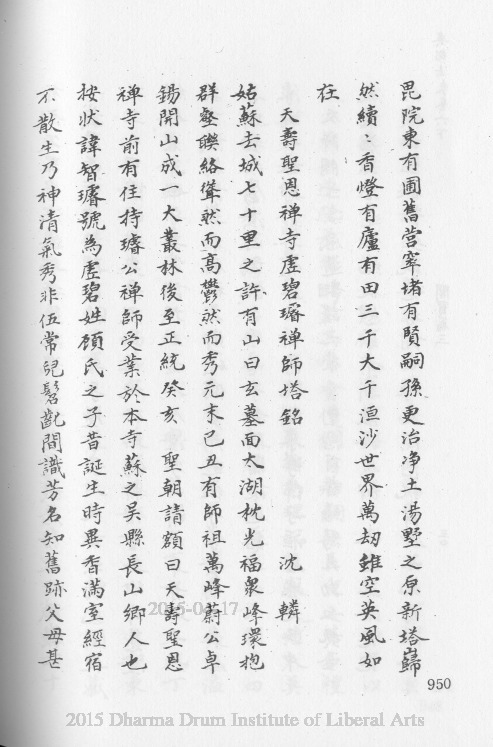 毘院東有圃舊營窣堵有賢嗣孫更治淨土湯墅之原新塔巋
然續〻香燈有廬有田三千大千洹沙世界萬劫雖空英風如
在
天壽聖恩禅寺虗碧璿禅師塔銘　沈轔
姑蘇去城七十里之許有山曰玄墓面大湖枕光福衆峰環抱
群壑聯絡聳然而高鬱然而秀元末己丑有師祖萬峰蔚公卓
錫開山成一大叢林後至正統癸亥　聖朝請額曰天壽聖恩
禅寺前有住持璿公禅師受業於本寺蘇之吴縣長山鄉人也
按狀諱智璿號為虗碧姓顧氏之子昔誕生時異香滿室經宿
不散生乃神清氣秀非伍常兒髫齓間識芳名知舊跡父母甚
950
2015-04-17
2015 Dharma Drum Institute of Liberal Arts